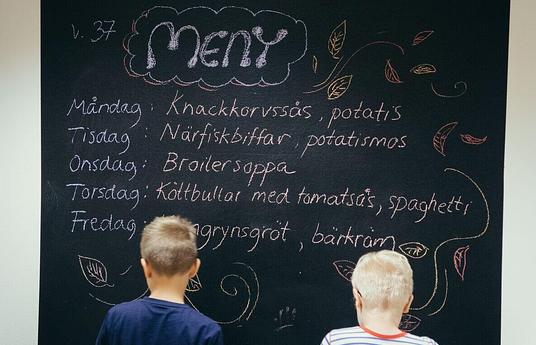 v. 37
MENY
Måndag: Knackkorvssås, potatis
Tisdag: Närfiskbiffar, potatismos
Onsdag: Broilersoppa
Torsdag: Köttbullar med tomatsås, spaghetti
Fredag ngrynsgröt, bärkräm